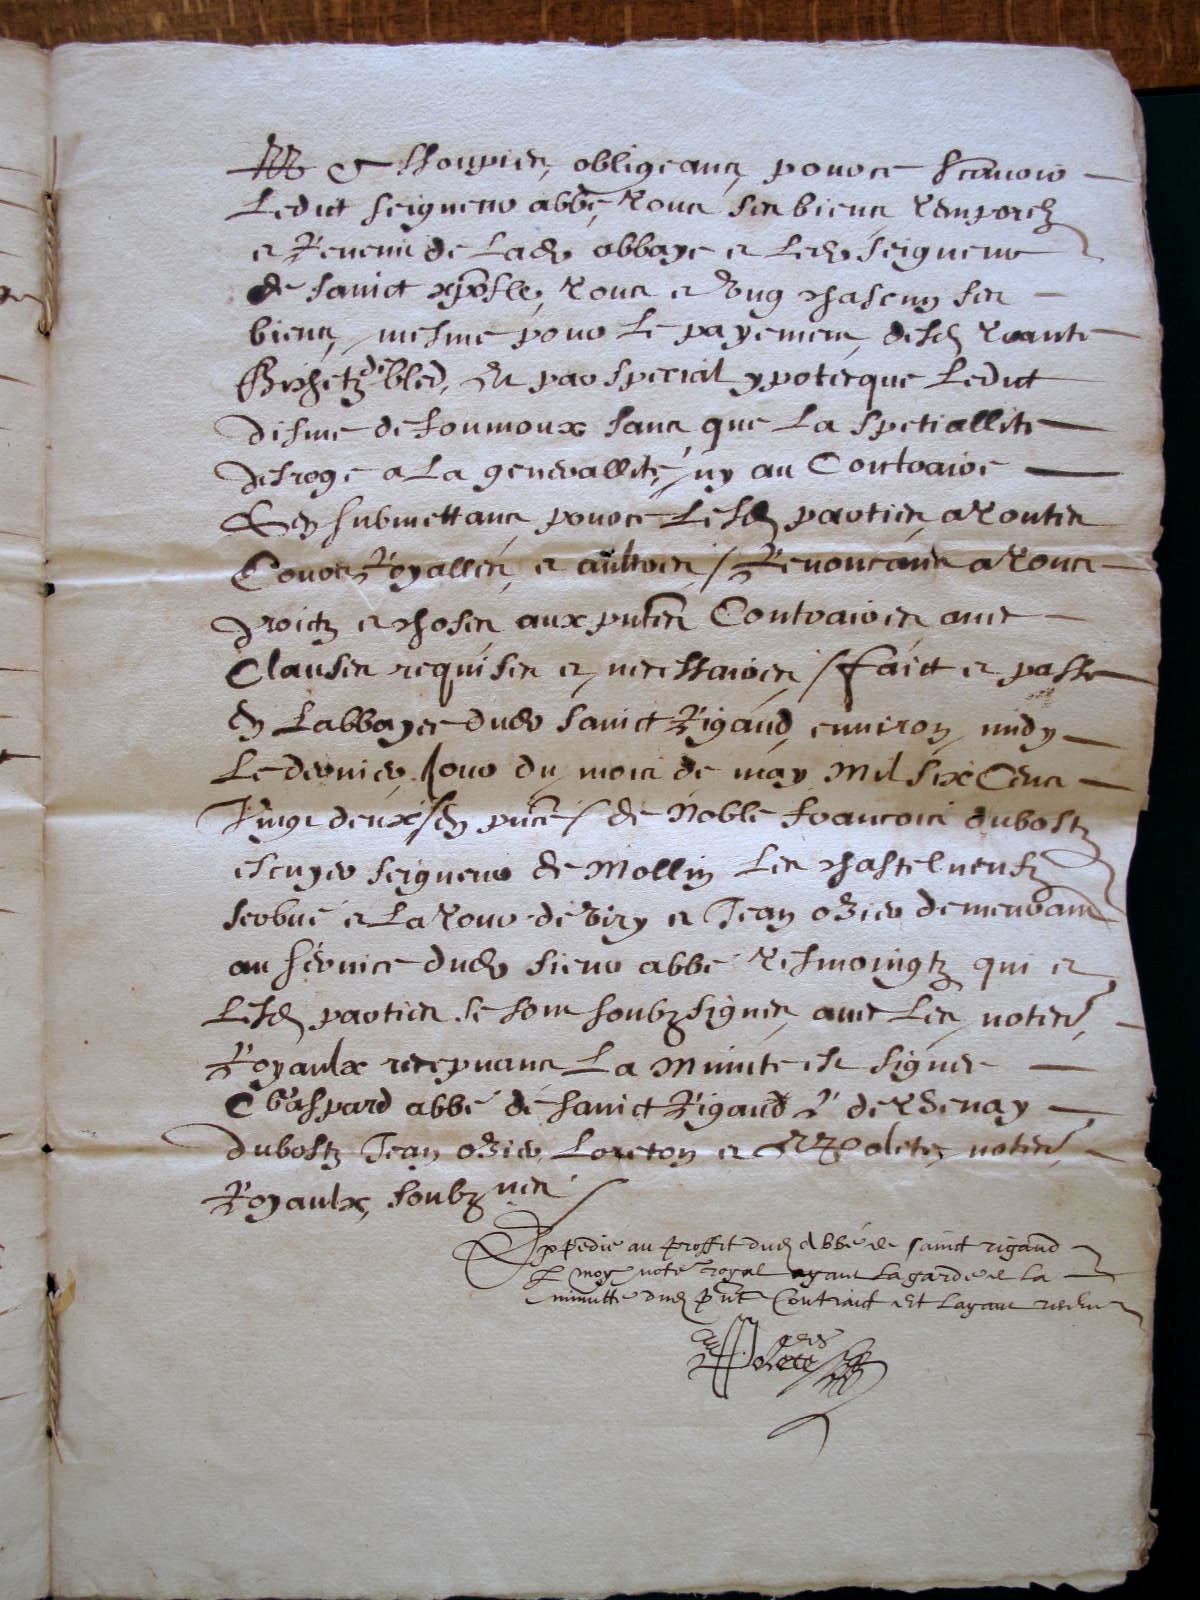 obligeans pource scavoir
Ledict seigneur abbé, tous ses biens temporelz
et Revenu de Lad abbaye et Led seigneur
de sainct xpofle, tous et ung chascun ses
biens, mesme pour Le payement, desd trante
Bichetz de bled, Et par special ypotecque Ledict
disme de que La spetiallite
desroge a La generallité, ny au Contraire
Et en submettans pource Lesd parties a toutes
Cours Royalles, et aultres, / Renoncans a tous
droictz et choses aux pntes Contraires avec
Clauses requises et necessaires, / faict et passé
En Labbaye dud sainct Rigaud, environ midy
Le dernier Jour du mois de may Mil six Cens
Vingt deux / En pnce / de Noble francois dubostz
escuyer seigneur de Mollin Les chastelneufz
et La tour de viry et Jean ozier demeurant
au service dud sieur abbé tesmoingtz qui et
Lesd parties se sont soubzsignes, avec Les notres,
Royaulx recepvans La Minute est signee
Gaspard abbé de sainct Rigaud
dubostz Jean ozier, Loreton et notres,
Royaulx, soubznes /
Expedie au proffit dud abbé de sainct rigaud
P moy notre royal ayant La garde de la
minutte dud pnt Contract Et Layant receu